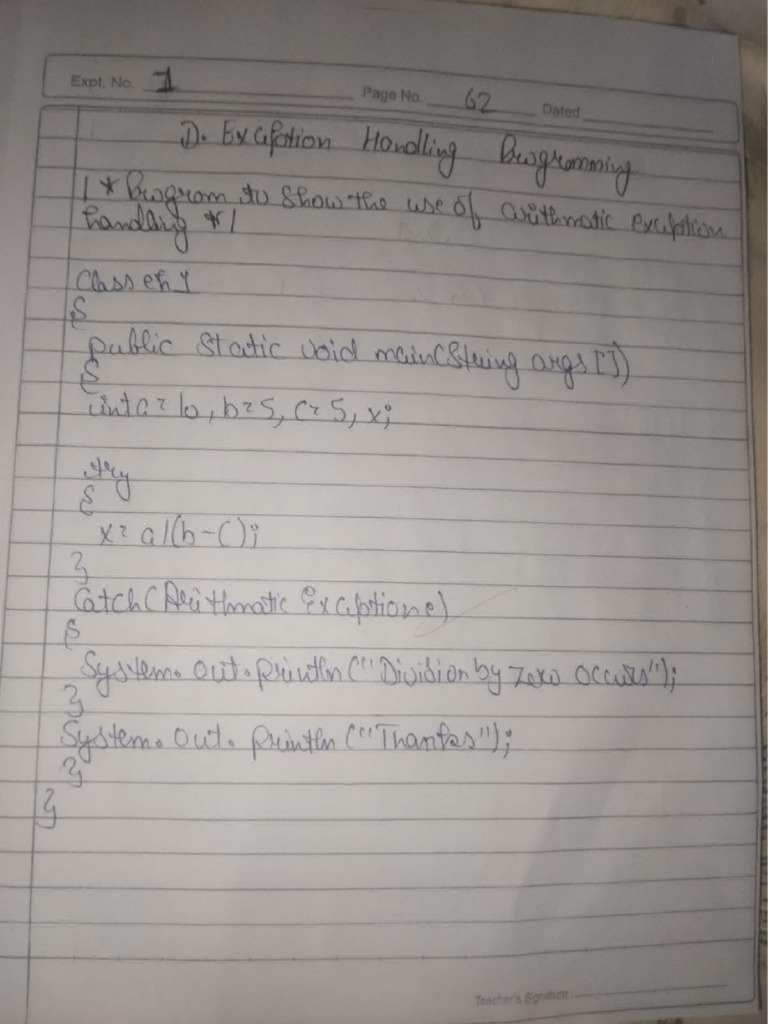 Expt. No. 1
Page No. 62 Dated
D. Exception Handling Programming
/* Program to show the use of arithmatic exception
handling */
class eh1
{
public static void main(String args[])
{
int a=10, b=5, c=5, x;
try
{
x= a/(b-c);
}
catch(Arithmatic Exception e)
{
System.out.println("Division by zero occurs");
}
System.out.println("Thanks");
}
}
Teacher's Signature: